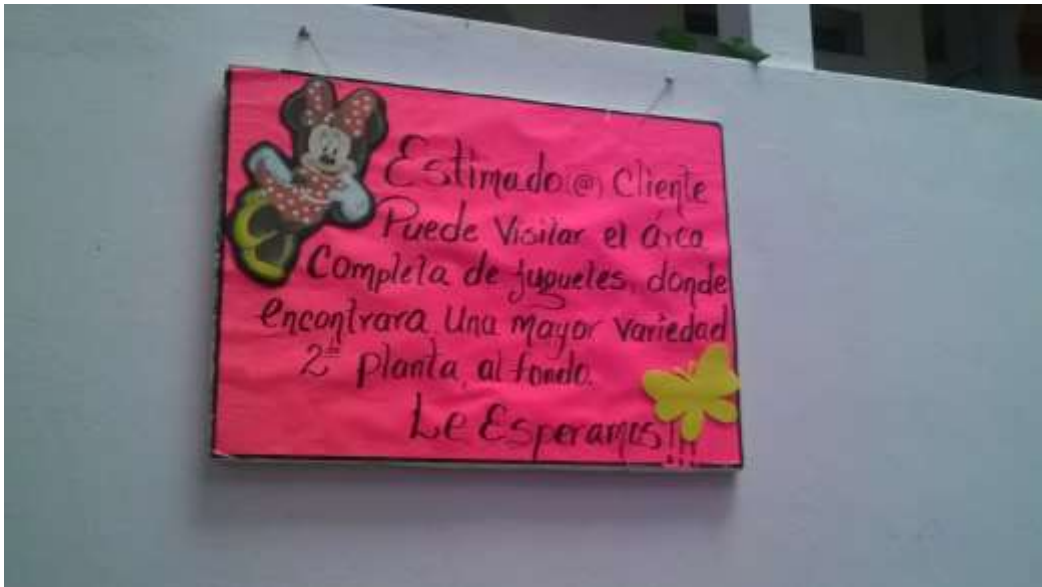 Estimado(@) Cliente
Puede Visitar el área
Completa de juguetes, donde
encontrara Una mayor variedad
2ª planta, al fondo.
Le Esperamos!!!